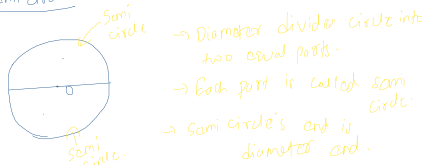 Semi
circle
→ Diameter divides circle into
two equal parts.
O
→ Each part is called semi
circle.
→ Semi circle's end is
diameter end.
semi
circle.